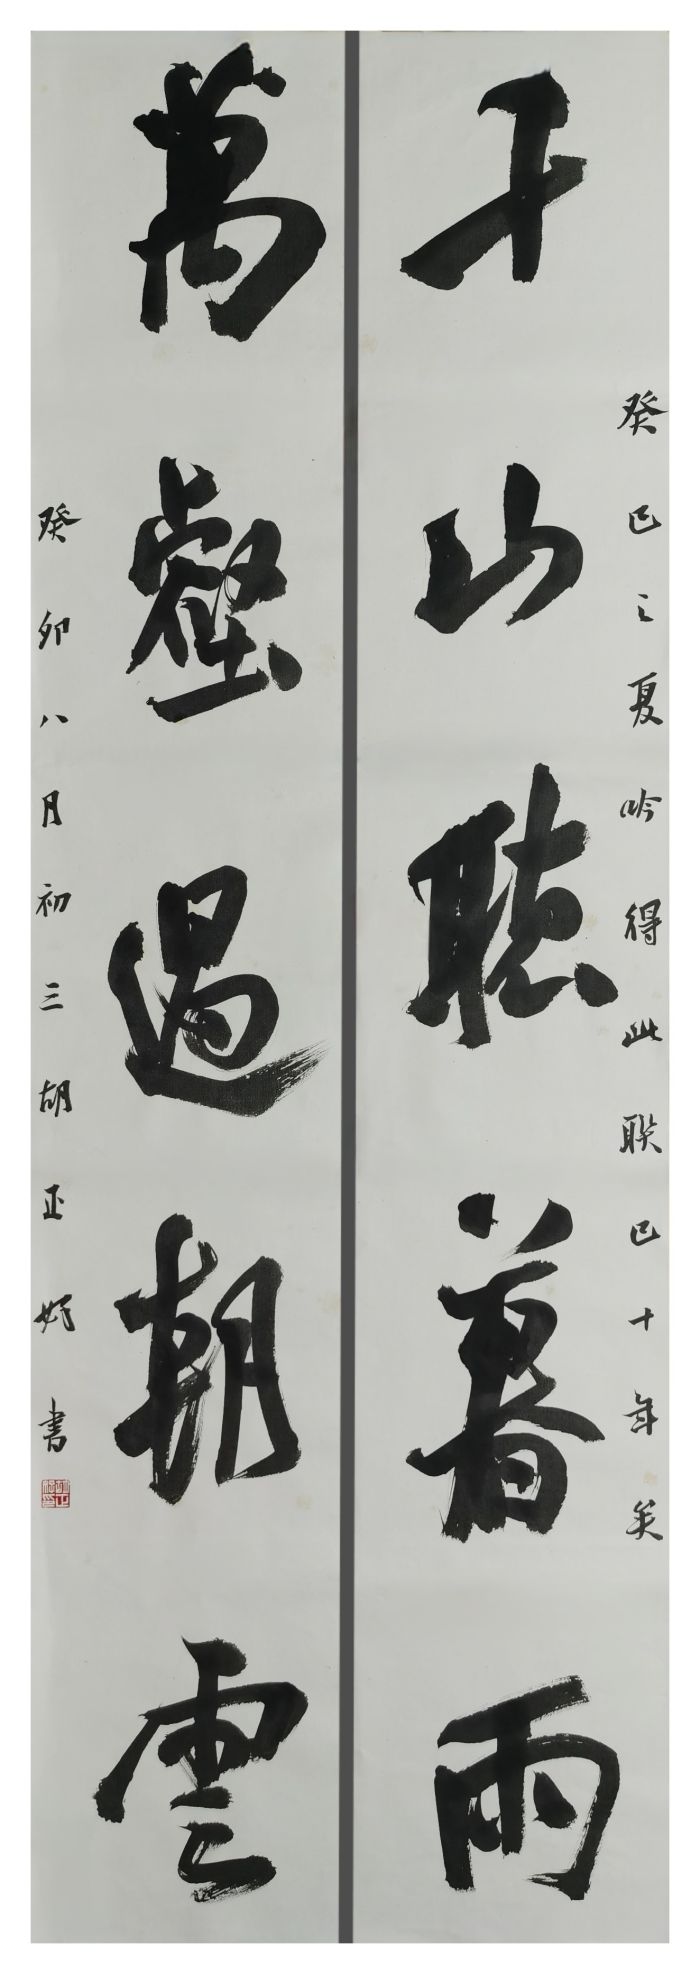 千山聽暮雨
癸巳之夏吟得此联已十年矣
萬壑過朝雲
癸卯八月初三胡正好書